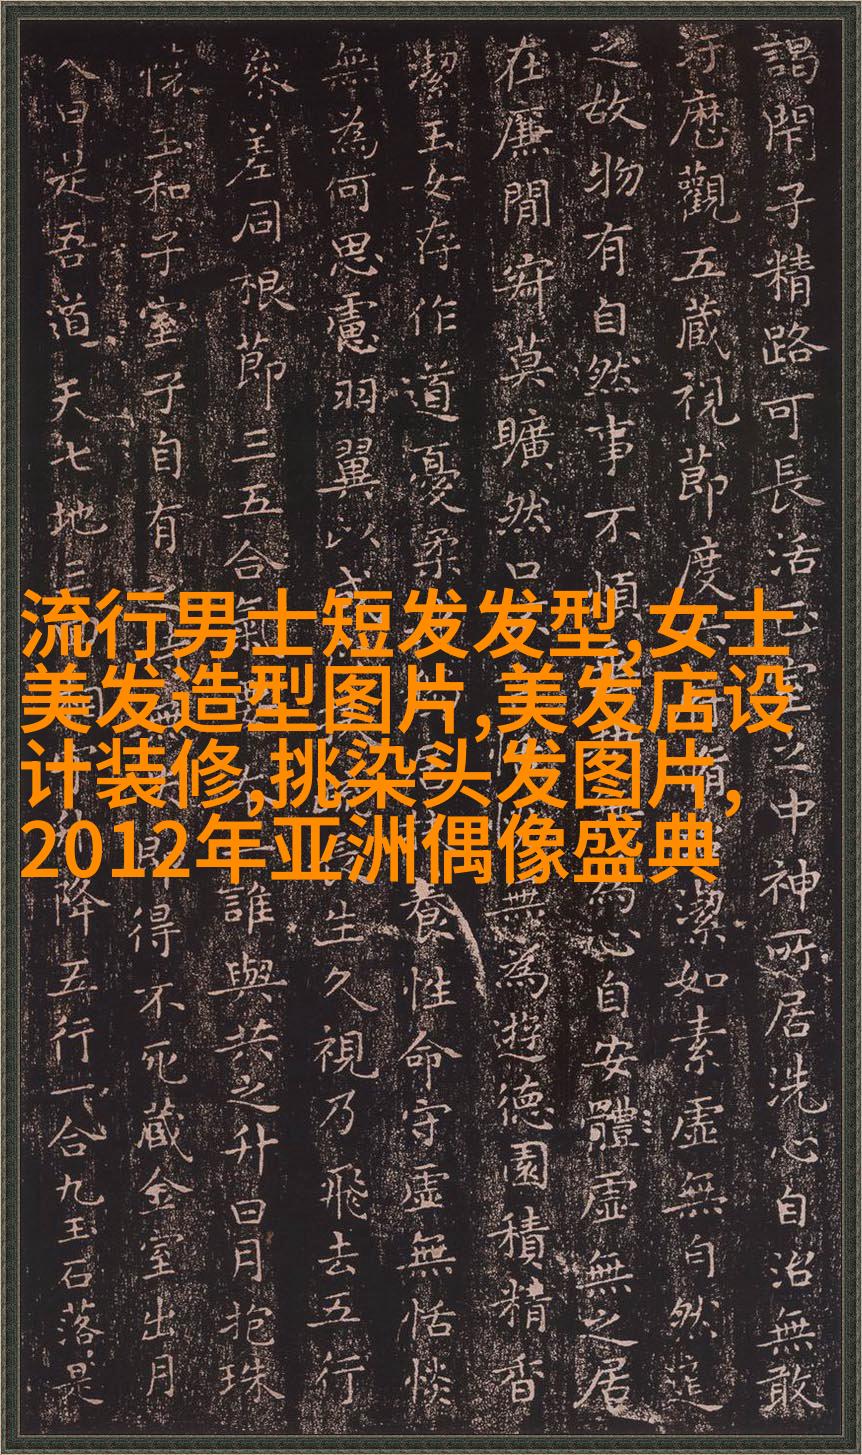 謁閇子精路可長活正室之中神所居洗心自治無敢
汙歷觀五藏視節度潔如素虛無自然道
之故物有自然事不煩無為心自安體虛無之居
在廉閒寂莫曠然口無為遊德園積精香
潔玉女存作道憂柔養性命守虛無恬惔
無為何思慮羽翼以成生久視乃飛去五行
參差同根節三五合氣誰與共之升日月抱珠
懷玉和子室子自有即得不死藏金室出月
入日是吾道天七地三降五行一合九玉石落是
流行男士短发发型,女士
美发造型图片,美发店设
计装修,挑染头发图片,
2012年亚洲偶像盛典